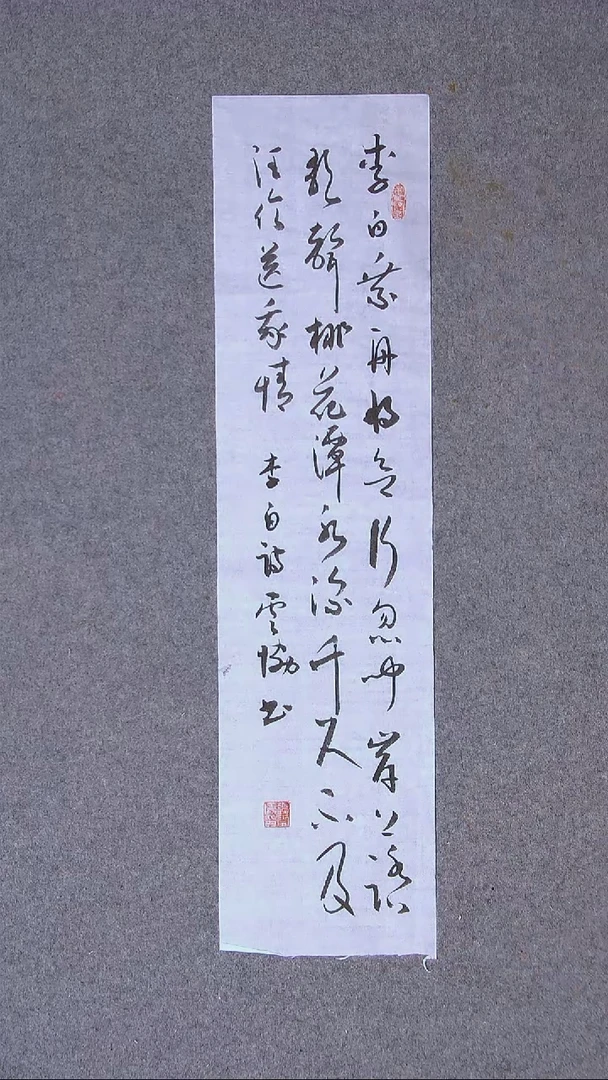 李白乘舟将欲行忽闻岸上踏
歌聲桃花潭水深千尺不及
汪伦送我情 李白诗 雲协书